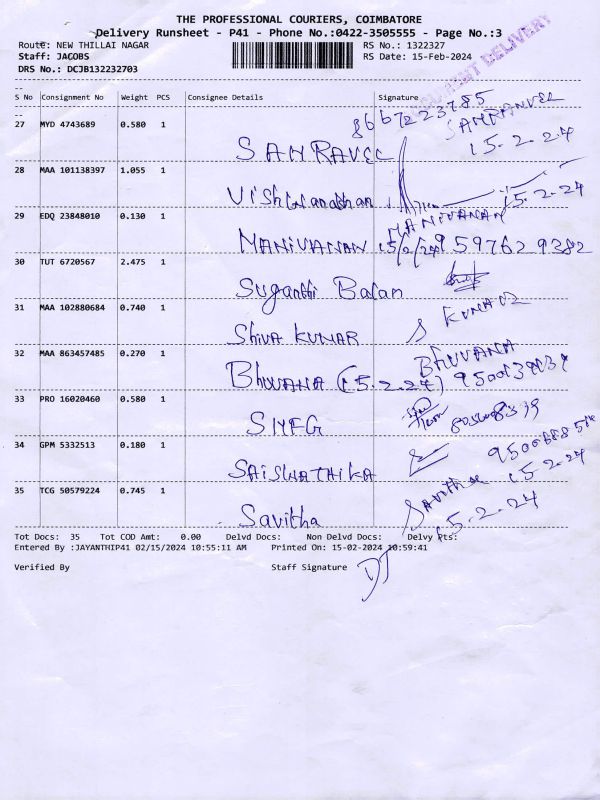 THE PROFESSIONAL COURIERS, COIMBATORE
Delivery Runsheet - P41 - Phone No.:0422-3505555 - Page No.:3
Route: NEW THILLAI NAGAR RS No.: 1322327
Staff: JACOBS RS Date: 15-Feb-2024
DRS No.: DCJB132232703
DELIVERY
--
S No Consignment No Weight PCS Consignee Details Signature
--
27 MYD 4743689 0.580 1 8667223785
SAMRAVEL 15.2.24
28 MAA 101138397 1.055 1
Vishwanathan 15.2.24
29 EDQ 23848010 0.130 1 MANIVANAN
MANIVANAN 15/2/24 9597629382
30 TUT 6720567 2.475 1
Suganthi Balan
31 MAA 102880684 0.740 1
Shiva KUMAR
32 MAA 863457485 0.270 1 BHUVANA
Bhuvana (15.2.24)
33 PRO 16020460 0.580 1
34 GPM 5332513 0.180 1
SAISWATHIKA 15.2.24
35 TCG 50579224 0.745 1 Savitha
Savitha 15.2.24
Tot Docs: 35 Tot COD Amt: 0.00 Delvd Docs: Non Delvd Docs: Delvy Pts:
Entered By :JAYANTHIP41 02/15/2024 10:55:11 AM Printed On: 15-02-2024 10:59:41
Verified By Staff Signature